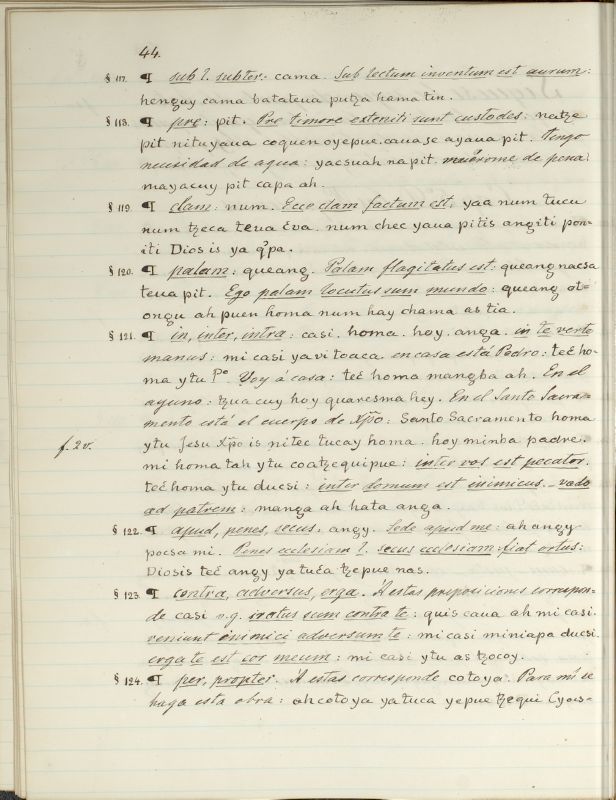 44.
§ 117. ¶ sub l. subter: cama. Sub lectum inventum est aurum:
henguy cama batateua putza hama tin.
§ 118. ¶ prę: pit. Pre timore exteniti sunt custodes: natze
pit nituyaua coquen oyepue.cauase ayaua pit. tengo
necesidad de agua: yacsuah na pit. muérome de pena:
mayacuy pit capa ah.
§ 119. ¶ clam: num. Ecce clam factum est: yaa num tucu
num tzeca teua čva. num chec yaua pitis angiti pon-
iti Dios is ya q̃pa.
§ 120. ¶ palam: queang. Palam flagitatus est: queang nacsa
teua pit. Ego palam locutus sum mundo: queang ot-
ongu ah puen homa num hay chama as tia.
§ 121. ¶ in, inter, intra: casi. homa. hoy. anga. in te verto
manus: mi casi ya vi toaca. en casa está Pedro: teč ho-
ma ytu Pº. Voy á casa: teč homa mangba ah. En el
ayuno: tzua cuy hoy quaresma hey. En el Santo Sacra-
mento está el cuerpo de Xp̃o: Santo Sacramento homa
f. 2v.
ytu Jesu Xp̃o is nitec tucay homa. hoy minba padre.
mi homa tah ytu coatzequipue: inter vos est pecator.
teč homa ytu ducsi: inter domum est inimicus. _ vado
ad patrem: manga ah hata anga.
§ 122. ¶ apud, penes, secus: angy. Sede apud me: ah angy
pocsa mi. Penes ecclesiam l. secus ecclesiam fiat ortus:
Diosis teč angy yatuča tzepue nas.
§ 123. ¶ contra, adversus, erga. Á estas preposiciones correspon-
de casi v.g. iratus sum contra te: quis caua ah mi casi.
veniunt inimici adversum te: mi casi miniapa ducsi.
erga te est cor meum: mi casi ytu as tzocoy.
§ 124. ¶ per, propter. Á estas corresponde cotoya. Para mí se
haga esta obra: ah cotoya yatuca yepue tzequi Cyocs-